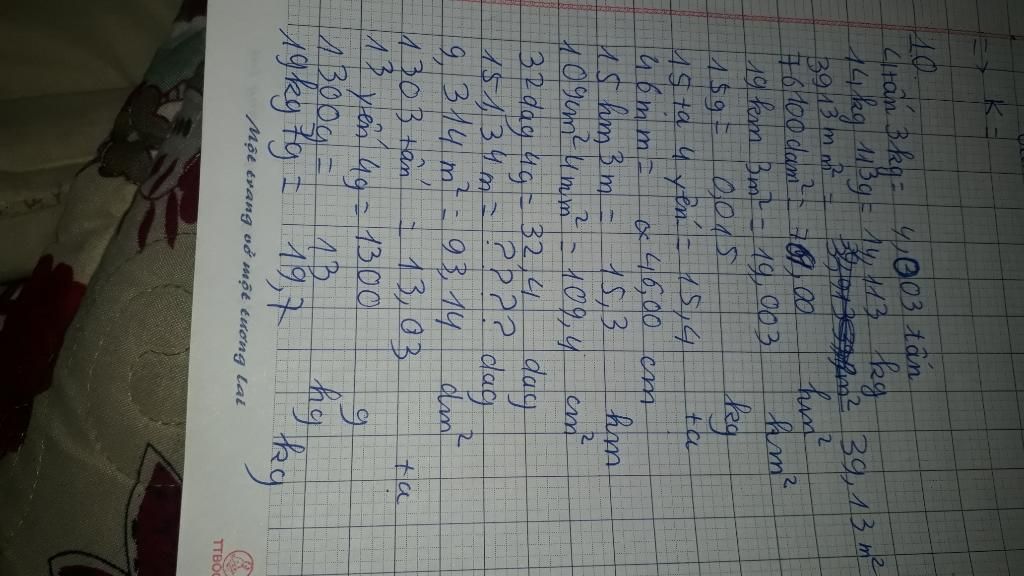 => K =
10.
4tấn 3kg = 4,003 tấn
14kg 113g = 14,113 kg
3913mm² = 39,13 m²
76100dam² = 00 hm²
19hm 3m² = 19,003 hm²
15g = 0,015 kg
15ta 4 yến = 15,4 ta
46mm = 46,00 cm
15hm 3m = 15,3 hm
109cm² 4mm² = 109,4 cm²
32dag 4g = 32,4 dag
151,34m = ???? dag
9,314m² = 93,14 dm²
1303 tấn = 13,03 ta
13 yến 4g = 1300 g
1300g = 13 hg
19kg 7g = 19,7 kg
Một trang vở một tương lai